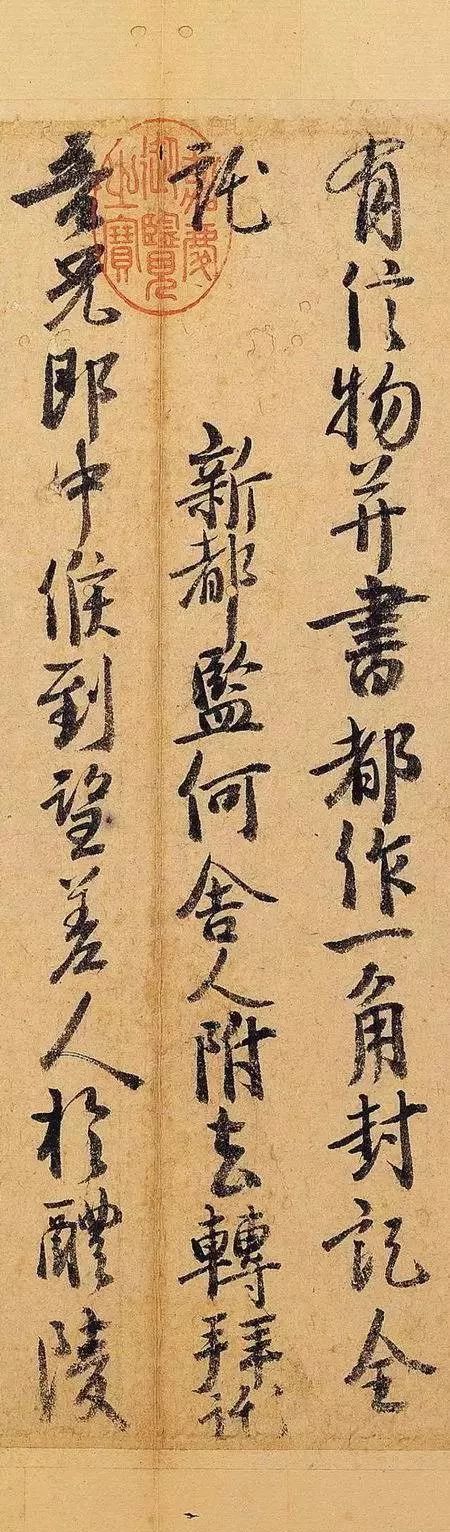 有信物并書都作一角封記全
託 新都監何舍人附去轉拜託
吾兄郎中候到望差人於醴陵
嘉慶御覽之寶